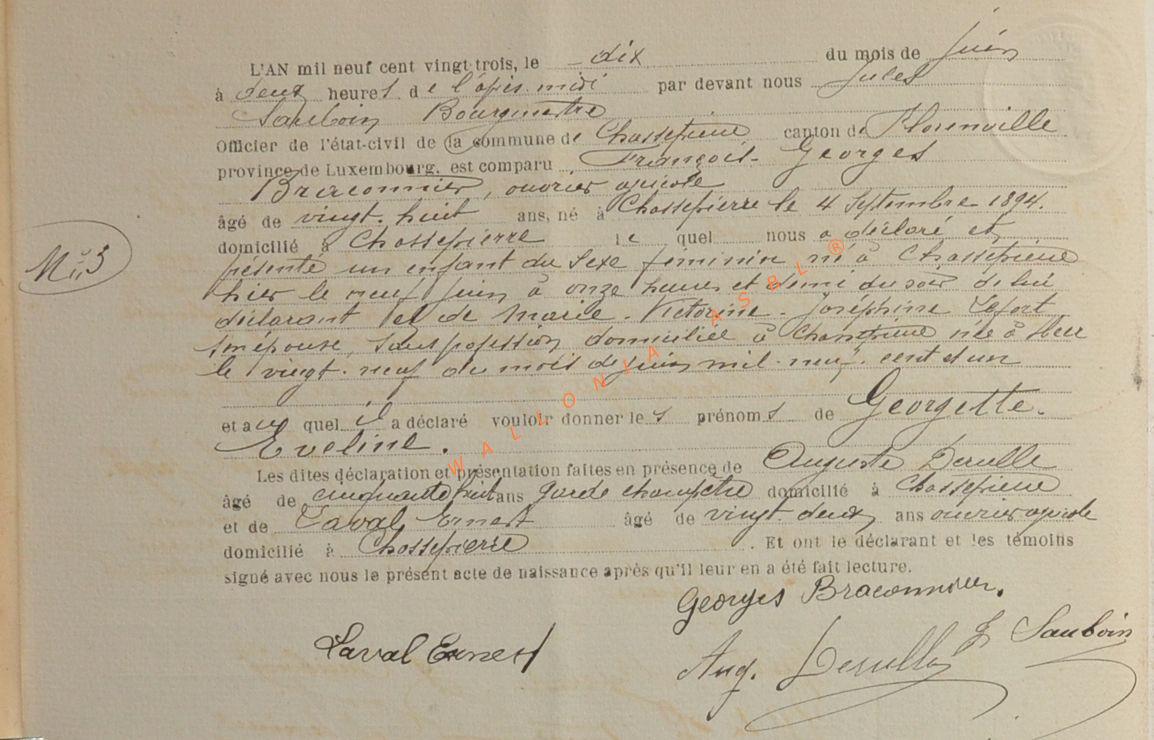 L'AN mil neuf cent vingt trois, le dix du mois de juin
à deux heures de l'après-midi par devant nous Jules
Sauboin Bourgmestre
Officier de l'état-civil de la commune de Chassepierre canton de Florenville
province de Luxembourg, est comparu François-Georges
Braconnier, ouvrier agricole
âgé de vingt-huit ans, né à Chassepierre le 4 Septembre 1894.
domicilié à Chassepierre le quel nous a déclaré et
N° 3
présenté un enfant du sexe féminin né à Chassepierre
hier le neuf juin à onze heures et demi du soir de lui
déclarant et de Marie-Victorine-Joséphine Lefort
son épouse, sans profession domiciliée à Chassepierre née à
le vingt-neuf du mois de juin mil-neuf-cent et un
et au quel il a déclaré vouloir donner les prénoms de Georgette-
Eveline.
Les dites déclaration et présentation faites en présence de Auguste Derulle
âgé de cinquante huit ans garde champêtre domicilié à Chassepierre
et de Laval Ernest âgé de vingt-deux ans ouvrier agricole
domicilié à Chassepierre. Et ont le déclarant et les témoins
signé avec nous le présent acte de naissance après qu'il leur en a été fait lecture.
Georges Braconnier.
Laval Ernest
Aug. Derulle
J Sauboin
WALLONIA ASBL ®